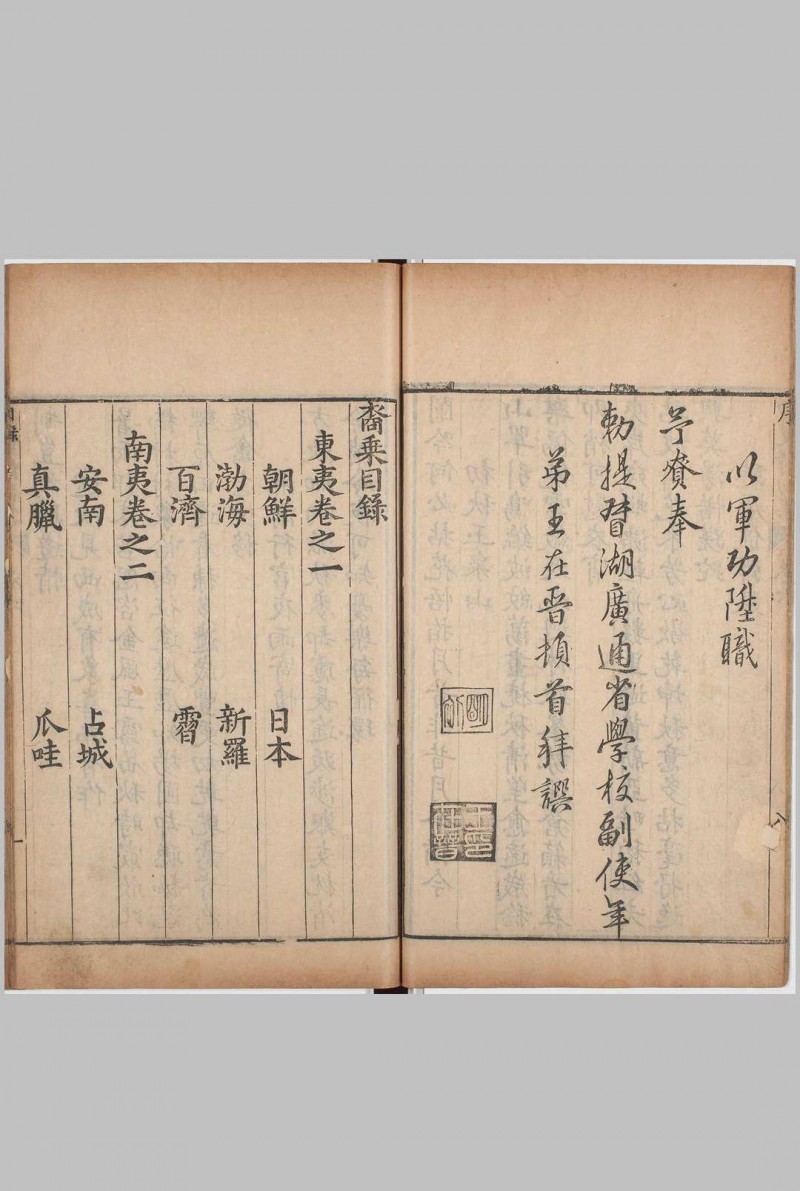 序
以軍功陞職
予賚奉
勑提督湖廣通省學校副使年
弟王在晉頓首拜譔
王印在晉
裔乗目錄
東夷卷之一
朝鮮 日本
渤海 新羅
百濟 霫
南夷卷之二
安南 占城
真臘 瓜哇